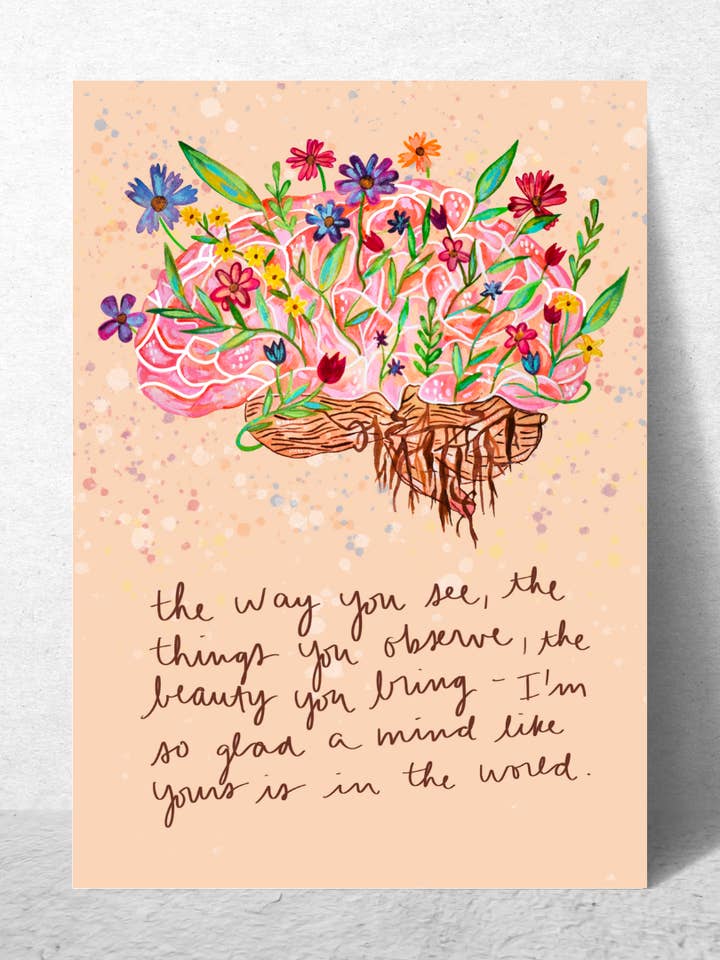 the way you see, the
things you observe, the
beauty you bring - I'm
so glad a mind like
yours is in the world.